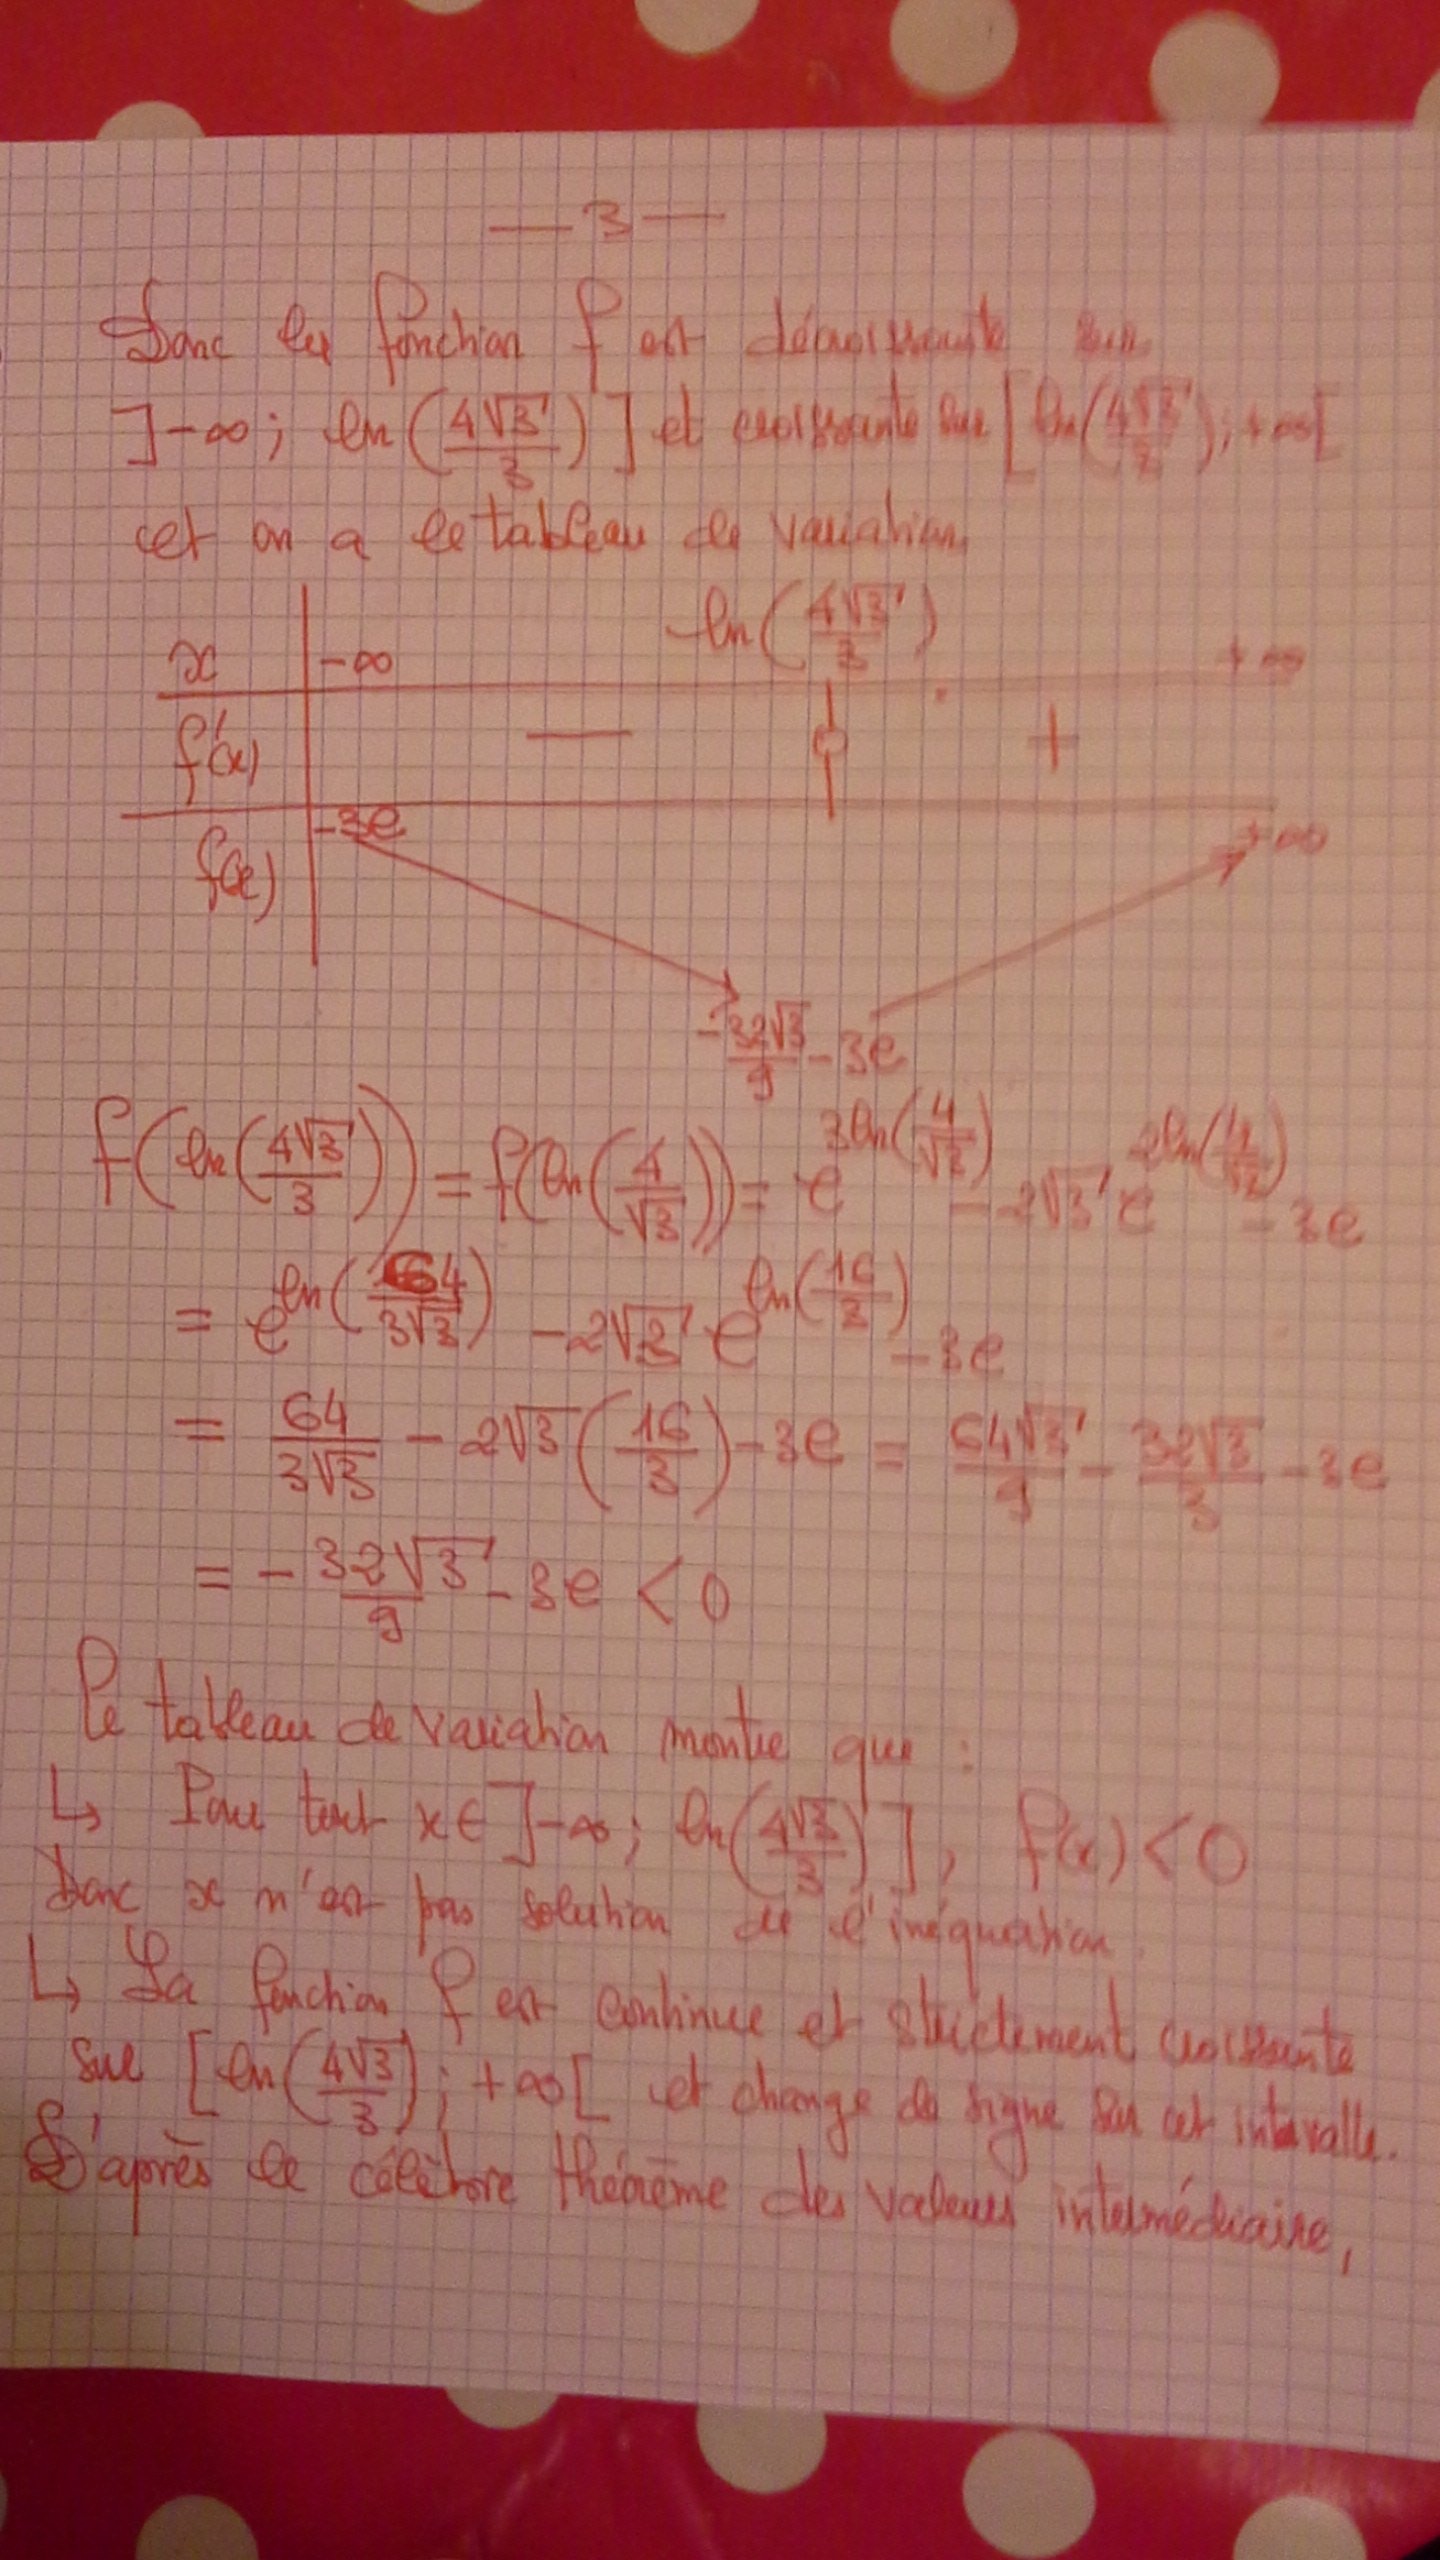 — 3 —
Donc la fonction f est décroissante sur
]-∞; ln(4√3/3)] et croissante sur [ln(4√3/3); +∞[
et on a le tableau de variation
x | -∞ ln(4√3/3) +∞
f'(x) | — 0 +
f(x) | -3e -32√3/9 - 3e +∞
f(ln(4√3/3)) = f(ln(4/√3)) = e^(3ln(4/√3)) - 2√3 e^(2ln(4/√3)) - 3e
= e^(ln(64/3√3)) - 2√3 e^(ln(16/3)) - 3e
= 64/3√3 - 2√3(16/3) - 3e = 64√3/9 - 32√3/3 - 3e
= -32√3/9 - 3e < 0
Le tableau de variation montre que :
↳ Pour tout x ∈ ]-∞; ln(4√3/3)], f(x) < 0
Donc x n'est pas solution de l'inéquation.
↳ La fonction f est continue et strictement croissante
sur [ln(4√3/3); +∞[ et change de signe sur cet intervalle.
D'après le célèbre théorème des valeurs intermédiaire,